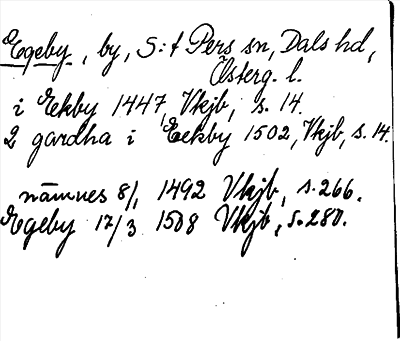 Egeby, by, S:t Pers sn, Dals hd,
Österg. l.
i Ekby 1447, Vkjb, s. 14.
2 gardha i Eekby 1502, Vkjb, s. 14.
nämnes 8/1 1492 Vkjb, s. 266.
Egeby 17/3 1508 Vkjb, s. 280.